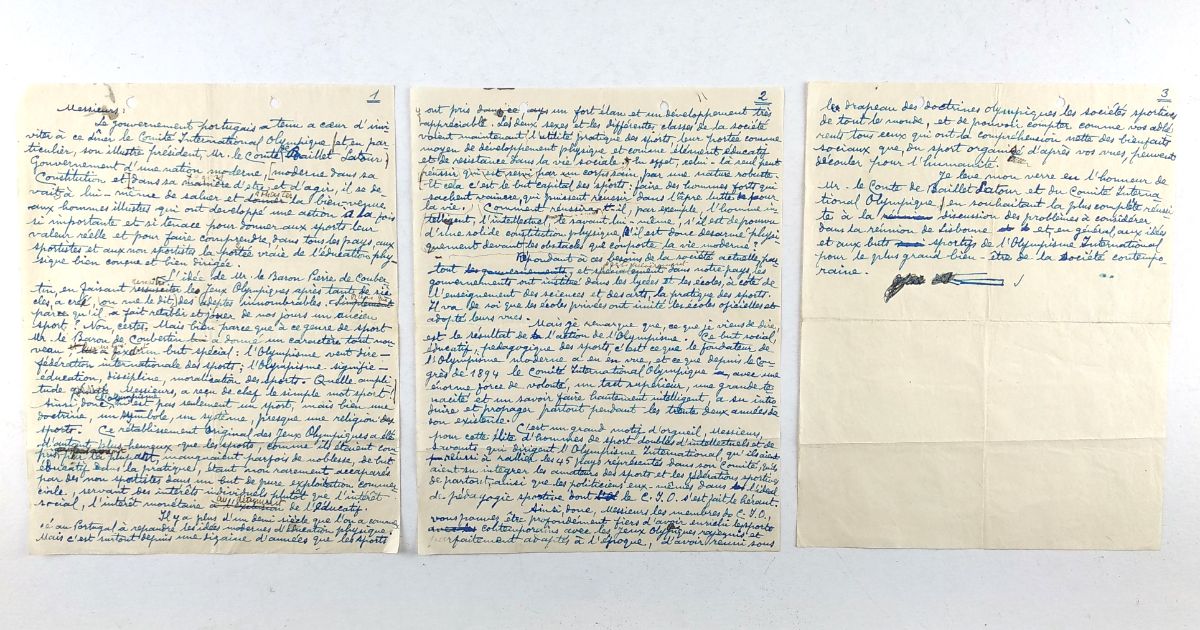 1
Messieurs:
Le gouvernement portugais a tenu a cœur d'invi
viter à ce diner le Comité International Olympique (et en par
ticulier, son illustre président, Mr. le Comte de Baillet Latour)
Gouvernement d'une nation moderne, moderne dans sa
Constitution et dans sa manière d'etre et d'agir, il se de
vait à lui-même de saluer et la bien-venue
aux hommes illustres qui ont developpé une action à la fois
si importante et si tenace pour donner aux sports leur
valeur réelle et pour faire comprendre, dans tous les pays, aux
sportistes et aux non sportistes la portée vraie de l'éducation phy-
sique bien conçue et bien dirigée.
L'idée de Mr. le Baron Pierre de Couber
tin, en faisant les Jeux Olympiques après tant de siè
cles, a créé (on me le dit) des adeptes innombrables.
parce qu'il a fait rétablir et jouer de nos jours un ancien
sport? Non, certes. Mais bien parce que à ce genre de sport
Mr. le Baron de Coubertin a donné un caractère tout nou
veau, un but special: l'Olympisme veut dire -
fédération internationale des sports; l'Olympisme signifie -
éducation, discipline, moralisation des sports. Quelle ampli
tude, Messieurs, a reçu de chef le simple mot sport!
Ainsi donc, l'Olympisme n'est pas seulement un sport, mais bien une
doctrine, un symbole, un système, presque une religion des
sports. Ce rétablissement original des Jeux Olympiques a été
d'autant plus heureux que les sports, comme ils étaient com
pris par la plupart manquaient parfois de noblesse, de but
éducatif dans la pratique, étant non rarement accaparés
par des non sportistes dans un but de pure exploitation commer
ciale, servant des interêts individuels plutôt que l'interêt
social, l'interêt monétaire au de l'éducatif.
Il y a plus d'un demi siècle que l'on a commen
cé au Portugal à répandre les idées modernes d'éducation physique.
Mais c'est surtout depuis une dizaine d'années que les sports
2
y ont pris un fort élan et un développement très
appréciable. Les deux sexes et les différentes classes de la société
voient maintenant l'utilité pratique des sports, sur tout comme
moyen de développement physique et comme élément éducatif
et de resistance dans la vie sociale. En effet, celui-là seul peut
réussir qui est servi par un corps sain, par une nature robuste.
Et cela c'est le but capital des sports: faire des hommes forts qui
sachent vaincre, qui puissent réussir dans l'âpre lutte pour
la vie. Comment réussira-t-il, par exemple, l'homme in
telligent, l'intellectuel, le savant lui-même, s'il est depourvu
d'une solide constitution physique, s'il est donc désarmé physi
quement devant les obstacles que comporte la vie moderne?
Répondant à ces besoins de la société actuelle,
et spécialement dans notre pays, les
gouvernements ont institué dans les lycées et les écoles, à côté de
l'enseignement des sciences et des arts, la pratique des sports.
Il va de soi que les écoles privées ont imité les écoles officielles et
adopté leurs vues.
Mais je remarque que, ce que je viens de dire,
est le résultat de l'action de l'Olympisme. Ce but social,
éducatif, pédagogique des sports, c'est ce que le fondateur de
l'Olympisme moderne a eu en vue, et ce que depuis le Con
grès de 1894 le Comité International Olympique, avec une
énorme force de volonté, un tact supérieur, une grande te
nacité et un savoir faire hautement intelligent, a su intro
duire et propager partout pendant les trente deux années de
son existence.
C'est un grand motif d'orgueil, messieurs,
pour cette élite d'hommes de sport doublés d'intellectuels et de
savants qui dirigent l'Olympisme International, qu'ils aient
réussi à rallier les 45 pays représentés dans son Comité, qu'ils
aient su intégrer les amateurs des sports et les fédérations sportives
de partout, ainsi que les politiciens eux-mêmes dans l'ideal
de pédagogie sportive dont le C.I.O. s'est fait le héraut.
Ainsi, donc, Messieurs les membres du C.I.O.,
vous pouvez être profondément fiers d'avoir ennobli les sports
contemporains avec les Jeux Olympiques rajeunis et
parfaitement adaptés à l'époque, d'avoir réuni sous
3
le drapeau des doctrines olympiques les sociétés sportives
de tout le monde, et de pouvoir compter comme vos adhé
rents tous ceux qui ont la compréhension nette des bienfaits
sociaux que, du sport organisé d'après vos vues, peuvent
découler pour l'humanité.
Je leve mon verre en l'honneur de
Mr. le Comte de Baillet Latour et du Comité Interna
tional Olympique, en souhaitant la plus complète réussi
te à la discussion des problèmes à considérer
dans la réunion de Lisbonne et, en général, aux idées
et aux buts sportifs de l'Olympisme International
pour le plus grand bien-être de la société contempo
raine.